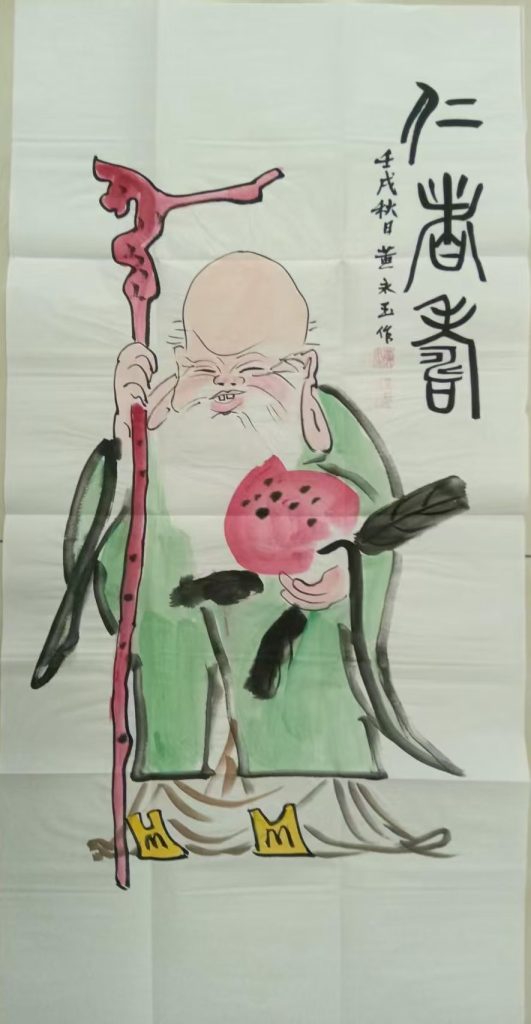 仁者壽
壬戌秋日黄永玉作